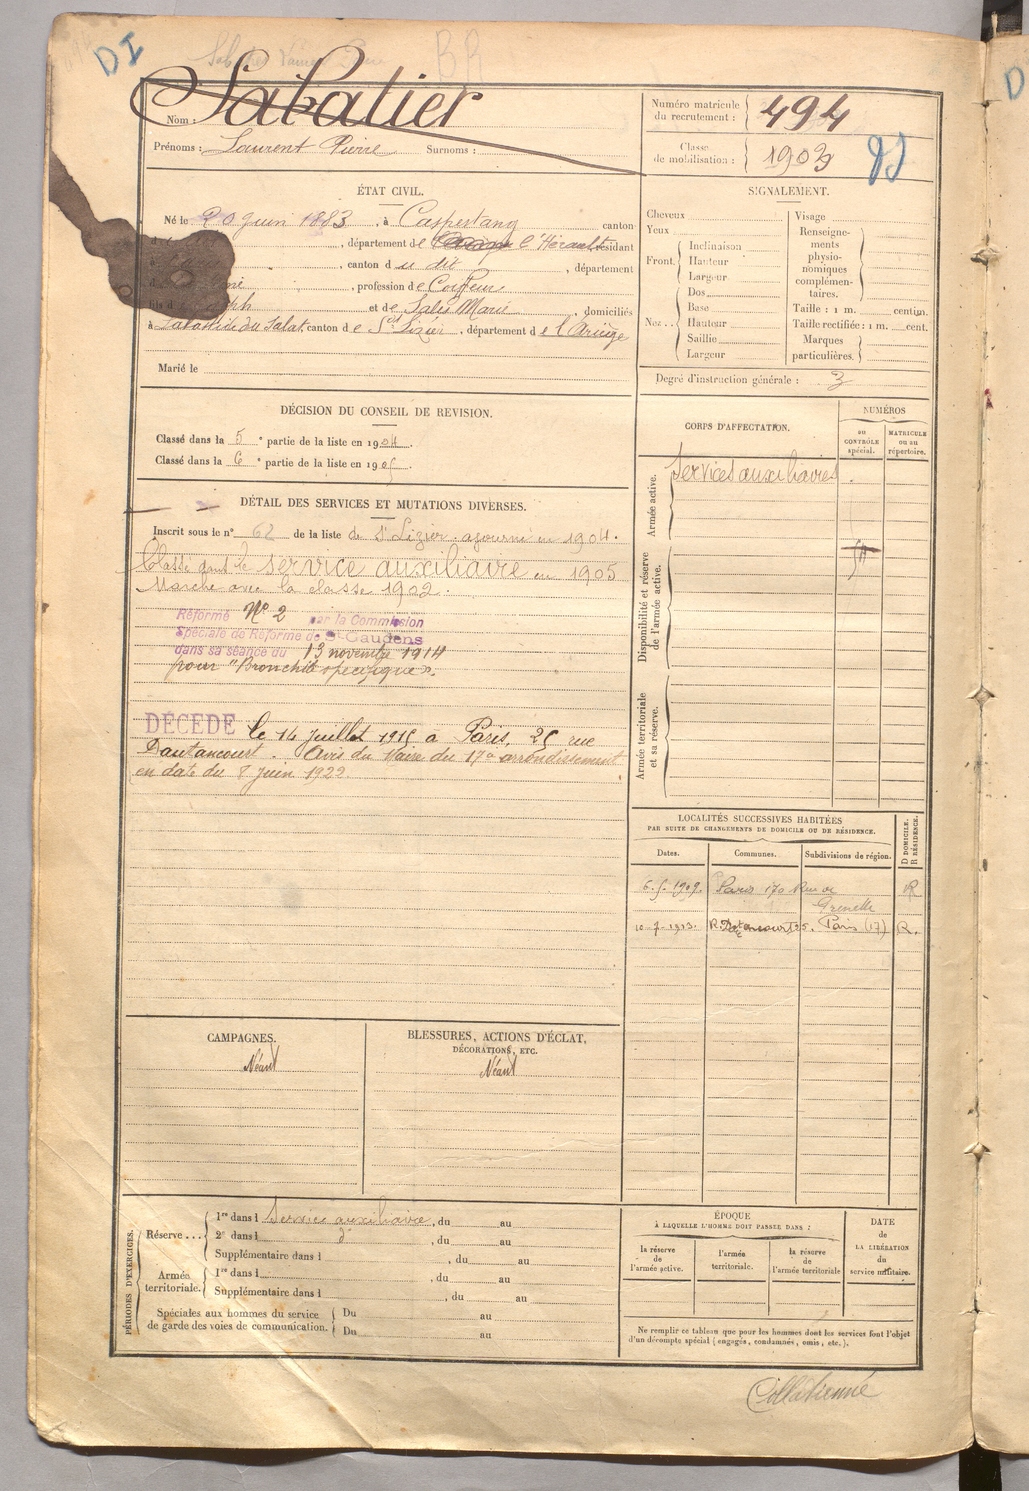 DI
BR
Sabatier
Nom :
Prénoms : Laurent Pierre Surnoms :
Numéro matricule du recrutement : 494
Classe de mobilisation : 1903
ÉTAT CIVIL.
Né le 20 Juin 1883, à Caspestang canton
département de l'Hérault résidant
canton du dit, département
profession de Coiffeur
et de Salis Marie, domiciliés
à Labastide du Salat canton de St Lizier, département de l'Ariège
Marié le
SIGNALEMENT.
Cheveux
Yeux
Front. Inclinaison
Hauteur
Largeur
Nez .. Dos
Base
Hauteur
Saillie
Largeur
Visage
Renseignements physionomiques complémentaires.
Taille : 1 m. centim.
Taille rectifiée : 1 m. cent.
Marques particulières.
Degré d'instruction générale : 3
DÉCISION DU CONSEIL DE REVISION.
Classé dans la 5e partie de la liste en 1904.
Classé dans la 6e partie de la liste en 1905.
DÉTAIL DES SERVICES ET MUTATIONS DIVERSES.
Inscrit sous le n° 62 de la liste de St Lizier. ajourné en 1904.
Classé dans le service auxiliaire en 1905
Marche avec la classe 1902.
Réformé N° 2 par la Commission
Spéciale de Réforme de St-Gaudens
dans sa séance du 13 novembre 1914
pour "Bronchite spécifique".
DÉCÉDÉ le 14 Juillet 1915 à Paris, 25 rue
Dautancourt. Avis du Maire du 17e arrondissement
en date du 8 Juin 1922.
CORPS D'AFFECTATION.
NUMÉROS
au CONTRÔLE spécial.
MATRICULE ou au répertoire.
Armée active.
Services auxiliaires
Disponibilité et réserve de l'armée active.
Armée territoriale et sa réserve.
LOCALITÉS SUCCESSIVES HABITÉES
PAR SUITE DE CHANGEMENTS DE DOMICILE OU DE RÉSIDENCE.
Dates. Communes. Subdivisions de région. D DOMICILE. R RÉSIDENCE.
6.5.1909. Paris 170 Rue de Grenelle R
10-7-1913. R. Dautancourt 25. Paris (17) R.
CAMPAGNES.
Néant
BLESSURES, ACTIONS D'ÉCLAT,
DÉCORATIONS, ETC.
Néant
PÉRIODES D'EXERCICES.
Réserve ... 1re dans l Service auxiliaire, du au
2e dans l do, du au
Supplémentaire dans l, du au
Armée territoriale. 1re dans l, du au
Supplémentaire dans l, du au
Spéciales aux hommes du service Du au
de garde des voies de communication. Du au
ÉPOQUE
À LAQUELLE L'HOMME DOIT PASSER DANS :
la réserve de l'armée active.
l'armée territoriale.
la réserve de l'armée territoriale
DATE de LA LIBÉRATION du service militaire.
Ne remplir ce tableau que pour les hommes dont les services font l'objet
d'un décompte spécial (engagés, condamnés, omis, etc.).